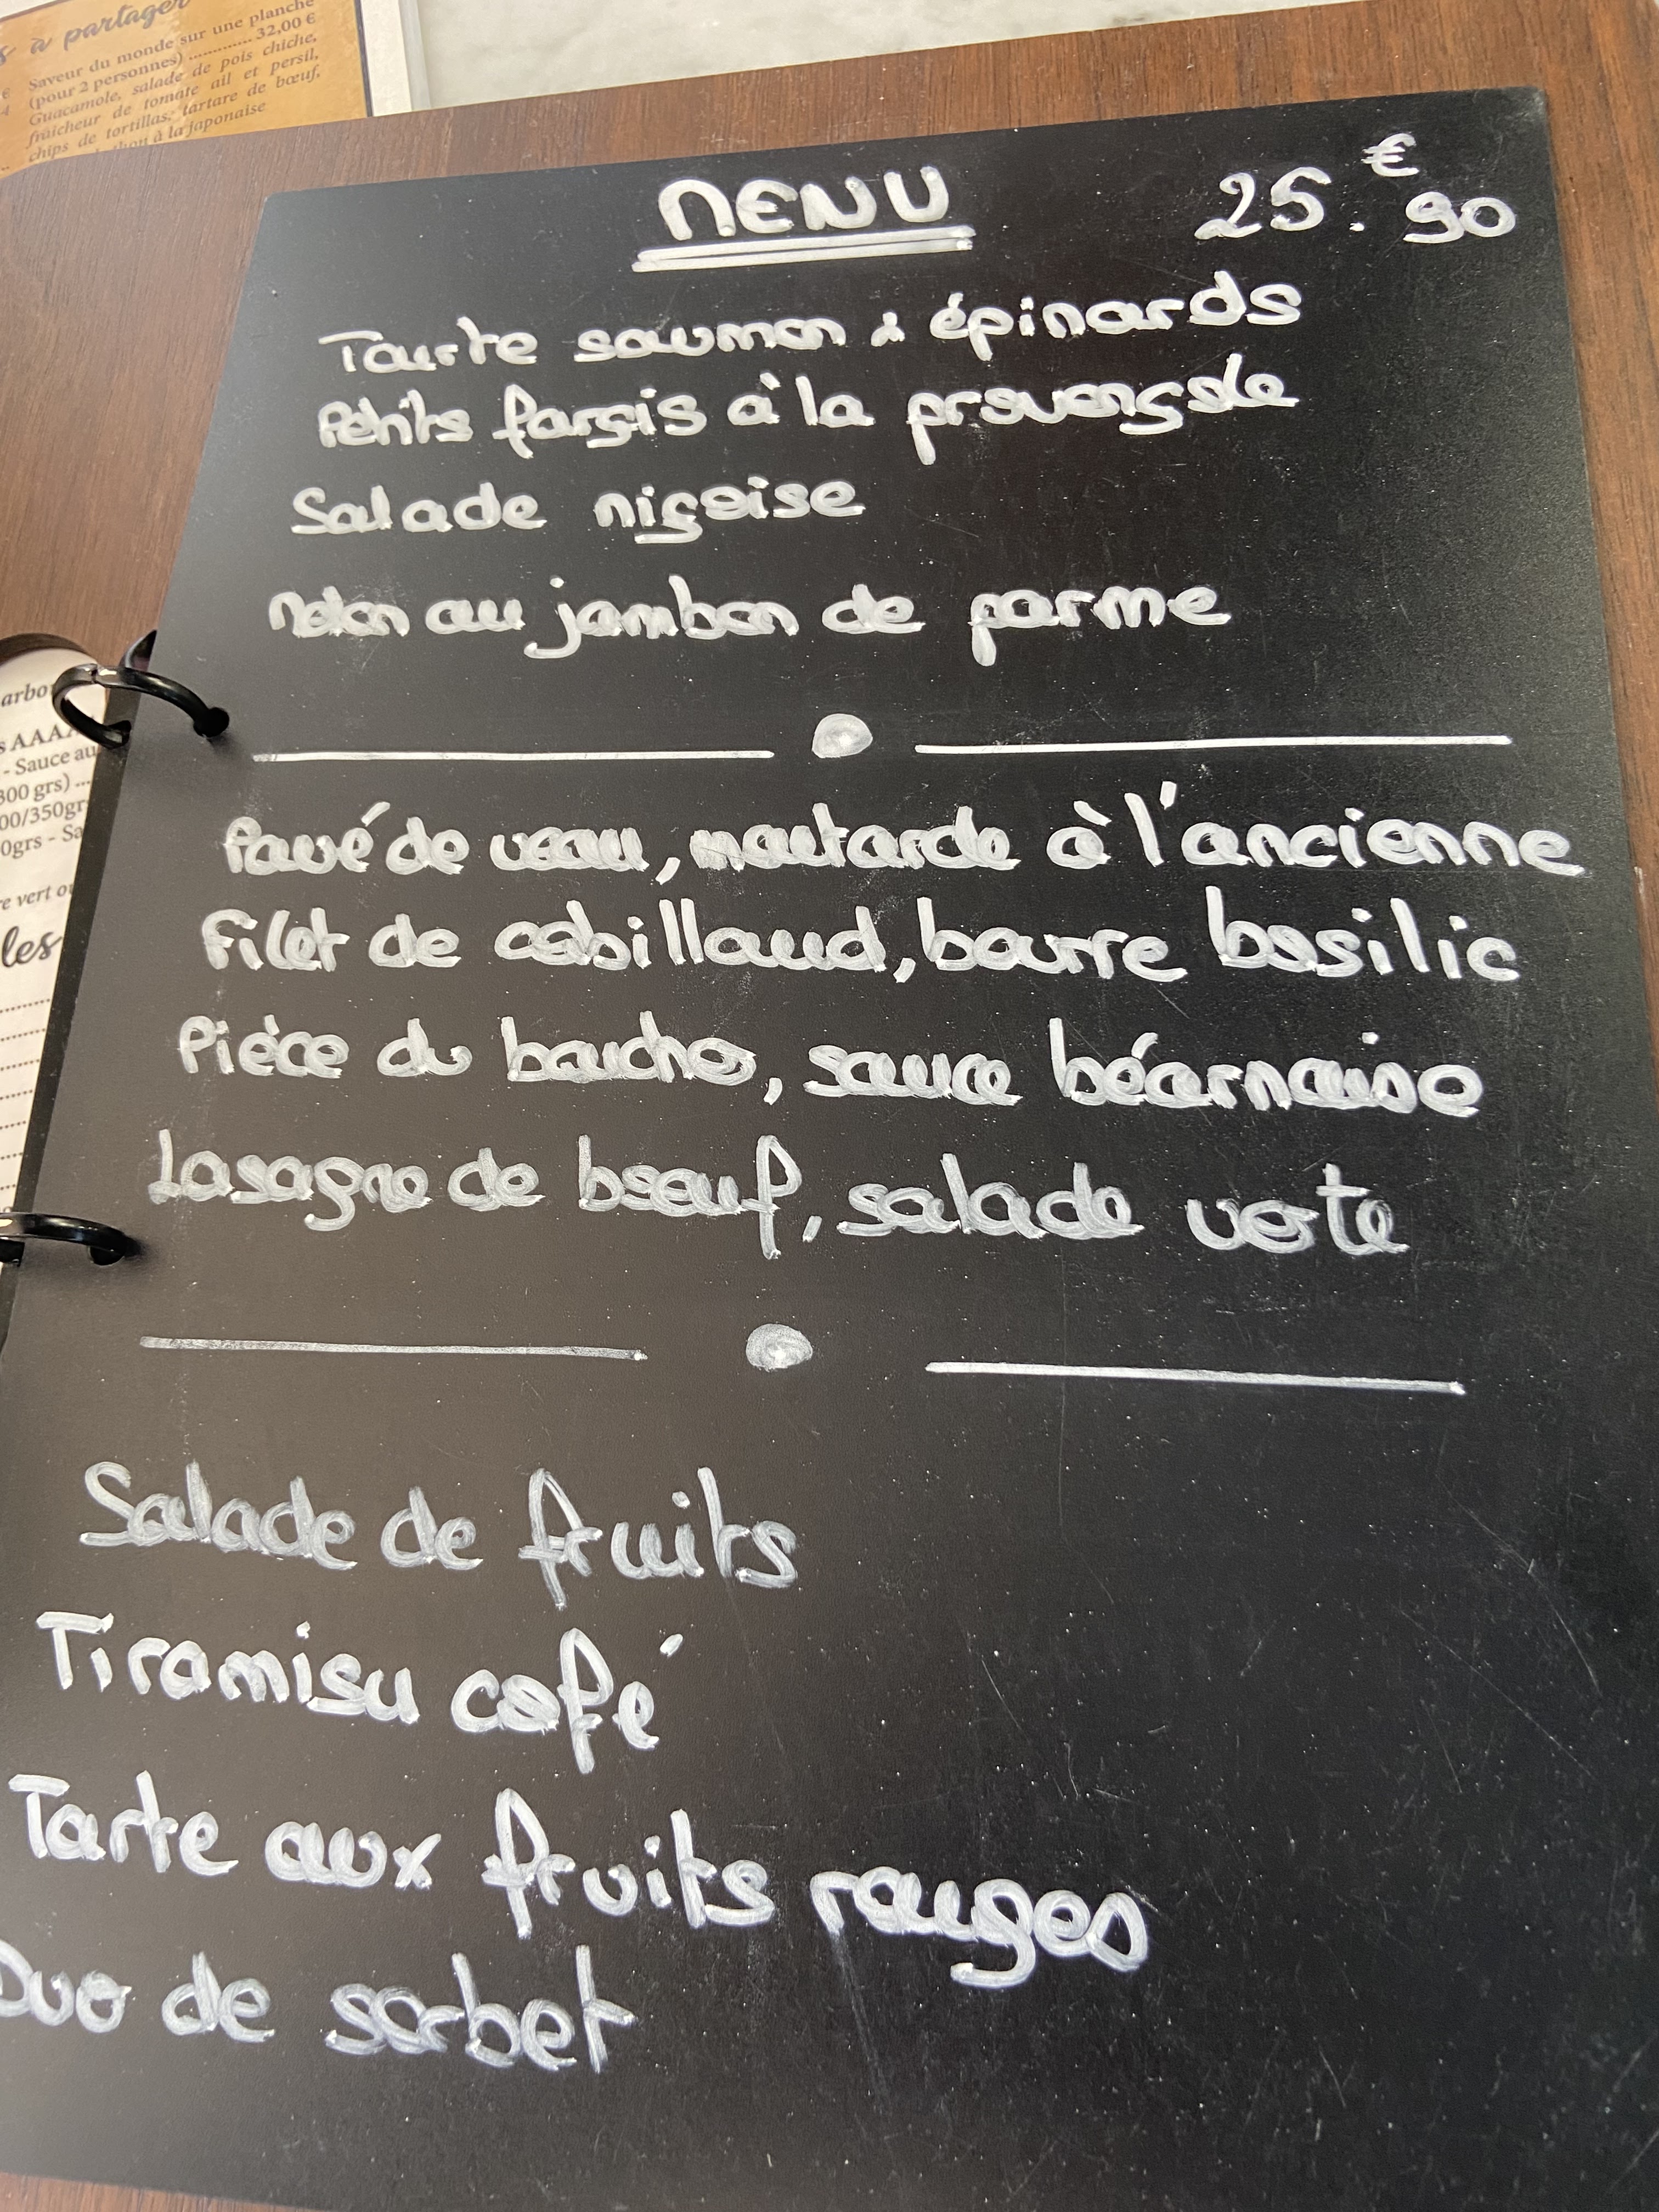 à partager
Saveur du monde sur une planche
(pour 2 personnes) .............. 32,00 €
Guacamole, salade de pois chiche,
fraîcheur de tomate ail et persil,
chips de tortillas, tartare de bœuf,
thon à la japonaise
MENU 25.€90
Tourte saumon & épinards
Petits farcis à la provençale
Salade niçoise
Melon au jambon de parme
Pavé de veau, moutarde à l'ancienne
Filet de cabillaud, beurre basilic
Pièce du boucher, sauce béarnaise
Lasagne de bœuf, salade verte
Salade de fruits
Tiramisu café
Tarte aux fruits rouges
Duo de sorbet
AAAA
- Sauce au
300 grs) ...
00/350gr
0grs - Sa
vert ou
les